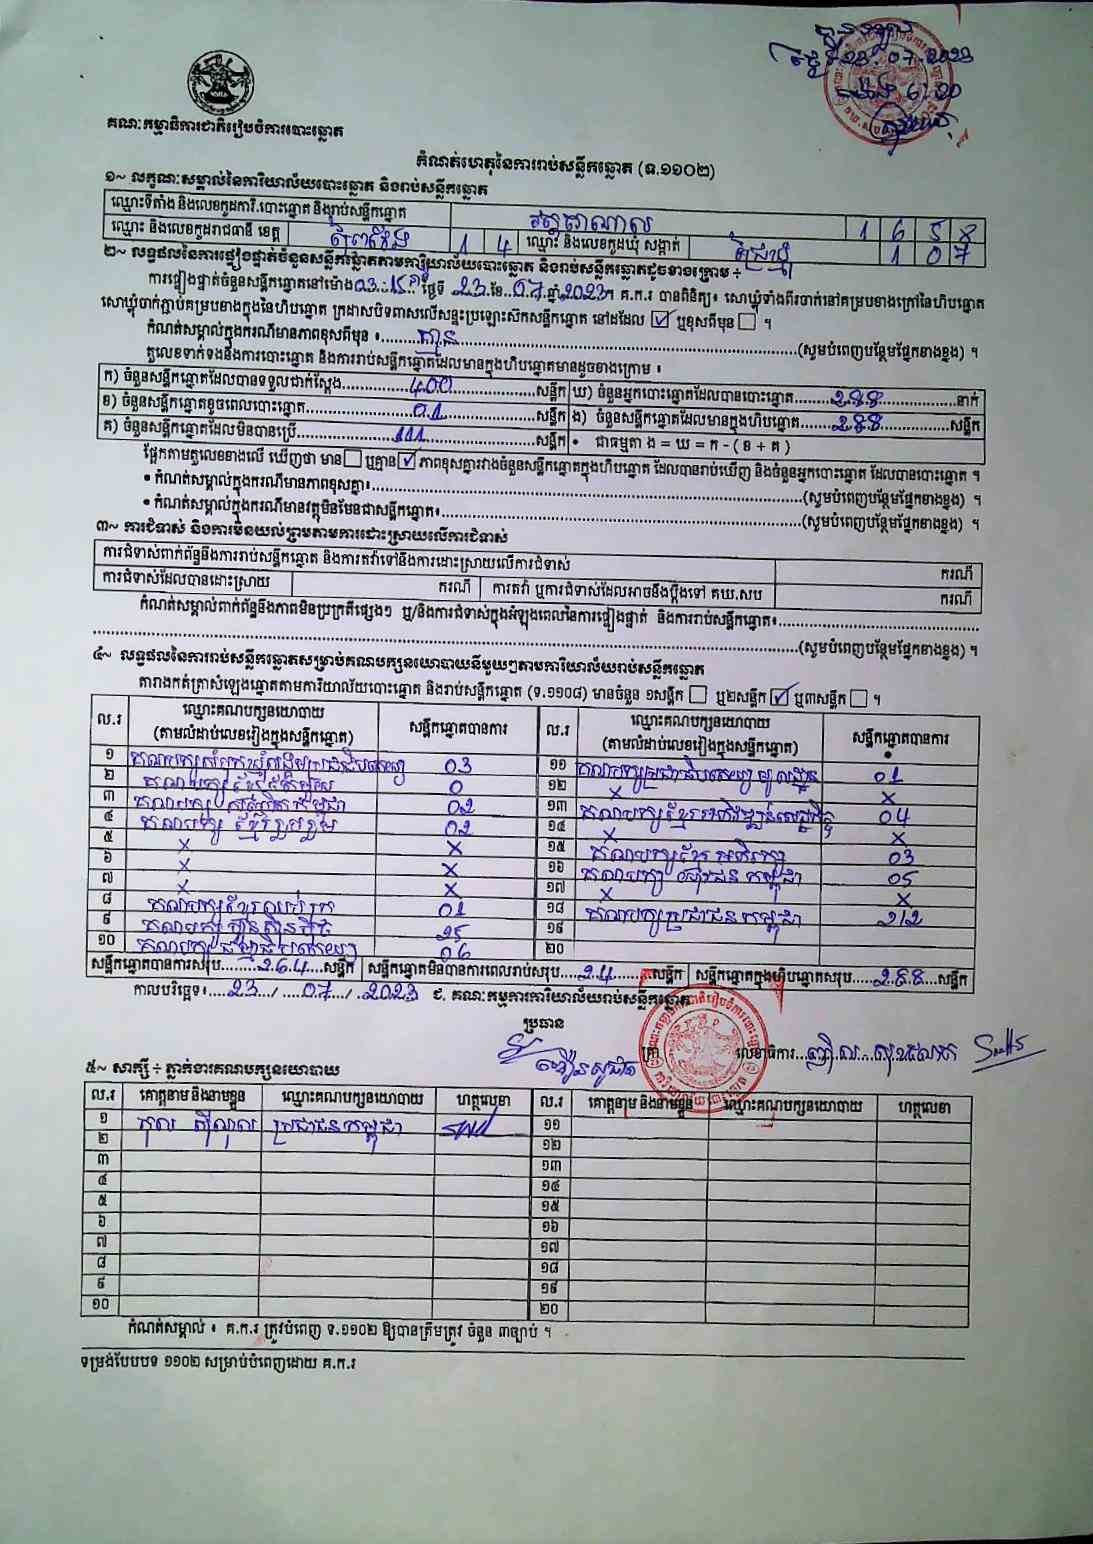 គណៈកម្មាធិការជាតិរៀបចំការបោះឆ្នោត
23.07.2023
ម៉ោង 6:20
កំណត់ហេតុនៃការរាប់សន្លឹកឆ្នោត (ទ.១១០២)
១~ លក្ខណៈសម្គាល់នៃការិយាល័យបោះឆ្នោត និងរាប់សន្លឹកឆ្នោត
ឈ្មោះទីតាំង និងលេខកូដការិ.បោះឆ្នោត និងរាប់សន្លឹកឆ្នោត 1 6 5 8
ឈ្មោះ និងលេខកូដរាជធានី ខេត្ត ព្រៃវែង 1 4 ឈ្មោះ និងលេខកូដឃុំ សង្កាត់ 1 0 7
២~ លទ្ធផលនៃការផ្ទៀងផ្ទាត់ចំនួនសន្លឹកឆ្នោតតាមការិយាល័យបោះឆ្នោត និងរាប់សន្លឹកឆ្នោតដូចខាងក្រោម ÷
ការផ្ទៀងផ្ទាត់ចំនួនសន្លឹកឆ្នោតនៅម៉ោង 03:15 ថ្ងៃទី 23 ខែ 07 ឆ្នាំ 2023។ គ.ក.រ បានពិនិត្យ៖ សោឃ្លុំទាំងពីរចាក់នៅគម្របខាងក្រៅនៃហិបឆ្នោត
សោឃ្លុំចាក់ភ្ជាប់គម្របខាងក្នុងនៃហិបឆ្នោត ក្រដាសបិទពាសលើសន្ទះប្រឡោះសឹកសន្លឹកឆ្នោត នៅដដែល ☑ ឬខុសពីមុន ☐ ។
កំណត់សម្គាល់ក្នុងករណីមានភាពខុសពីមុន ៖ គ្មាន (សូមបំពេញបន្ថែមផ្នែកខាងខ្នង) ។
តួលេខទាក់ទងនឹងការបោះឆ្នោត និងការរាប់សន្លឹកឆ្នោតដែលមានក្នុងហិបឆ្នោតមានដូចខាងក្រោម ៖
ក) ចំនួនសន្លឹកឆ្នោតដែលបានទទួលជាក់ស្តែង 400 សន្លឹក ឃ) ចំនួនអ្នកបោះឆ្នោតដែលបានបោះឆ្នោត 288 នាក់
ខ) ចំនួនសន្លឹកឆ្នោតខូចពេលបោះឆ្នោត 01 សន្លឹក ង) ចំនួនសន្លឹកឆ្នោតដែលមានក្នុងហិបឆ្នោត 288 សន្លឹក
គ) ចំនួនសន្លឹកឆ្នោតដែលមិនបានប្រើ 111 សន្លឹក • ជាធម្មតា ង = ឃ = ក - ( ខ + គ )
ផ្អែកតាមតួលេខខាងលើ ឃើញថា មាន ☐ ឬគ្មាន ☑ ភាពខុសគ្នារវាងចំនួនសន្លឹកឆ្នោតក្នុងហិបឆ្នោត ដែលបានរាប់ឃើញ និងចំនួនអ្នកបោះឆ្នោត ដែលបានបោះឆ្នោត ។
• កំណត់សម្គាល់ក្នុងករណីមានភាពខុសគ្នា៖ (សូមបំពេញបន្ថែមផ្នែកខាងខ្នង) ។
• កំណត់សម្គាល់ក្នុងករណីមានវត្ថុមិនមែនជាសន្លឹកឆ្នោត៖ (សូមបំពេញបន្ថែមផ្នែកខាងខ្នង) ។
៣~ ការជំទាស់ និងការមិនយល់ព្រមតាមការដោះស្រាយលើការជំទាស់
ការជំទាស់ពាក់ព័ន្ធនឹងការរាប់សន្លឹកឆ្នោត និងការតវ៉ាទៅនឹងការដោះស្រាយលើការជំទាស់ ករណី
ការជំទាស់ដែលបានដោះស្រាយ ករណី ការតវ៉ា ឬការជំទាស់ដែលអាចនឹងប្តឹងទៅ គឃ.សប ករណី
កំណត់សម្គាល់ពាក់ព័ន្ធនឹងភាពមិនប្រក្រតីផ្សេងៗ ឬ/និងការជំទាស់ក្នុងអំឡុងពេលនៃការផ្ទៀងផ្ទាត់ និងការរាប់សន្លឹកឆ្នោត៖
(សូមបំពេញបន្ថែមផ្នែកខាងខ្នង) ។
៤~ លទ្ធផលនៃការរាប់សន្លឹកឆ្នោតសម្រាប់គណបក្សនយោបាយនីមួយៗតាមការិយាល័យរាប់សន្លឹកឆ្នោត
តារាងកត់ត្រាសំឡេងឆ្នោតតាមការិយាល័យបោះឆ្នោត និងរាប់សន្លឹកឆ្នោត (ទ.១១០៨) មានចំនួន ១សន្លឹក ☐ ឬ២សន្លឹក ☑ ឬ៣សន្លឹក ☐ ។
ល.រ ឈ្មោះគណបក្សនយោបាយ (តាមលំដាប់លេខរៀងក្នុងសន្លឹកឆ្នោត) សន្លឹកឆ្នោតបានការ ល.រ ឈ្មោះគណបក្សនយោបាយ (តាមលំដាប់លេខរៀងក្នុងសន្លឹកឆ្នោត) សន្លឹកឆ្នោតបានការ
១ គណបក្សសំបុកឃ្មុំសង្គមប្រជាធិបតេយ្យ 03 ១១ គណបក្សប្រជាធិបតេយ្យមូលដ្ឋាន 01
២ គណបក្សខ្មែរ 0 ១២ X X
៣ គណបក្ស កម្ពុជា 02 ១៣ គណបក្សខ្មែរអភិវឌ្ឍន៍សេដ្ឋកិច្ច 04
៤ គណបក្ស ខ្មែររួបរួម 02 ១៤ X
៥ X X ១៥ គណបក្សខ្មែរអភិរក្ស 03
៦ X X ១៦ គណបក្ស យុវជនកម្ពុជា 05
៧ X X ១៧ X X
៨ គណបក្សខ្មែរឈប់ក្រ 01 ១៨ គណបក្សប្រជាជនកម្ពុជា 212
៩ គណបក្សហ្វ៊ុនស៊ិនប៉ិច 25 ១៩
១០ គណបក្សធម្មាធិបតេយ្យ 06 ២០
សន្លឹកឆ្នោតបានការសរុប 264 សន្លឹក សន្លឹកឆ្នោតមិនបានការពេលរាប់សរុប 24 សន្លឹក សន្លឹកឆ្នោតក្នុងហិបឆ្នោតសរុប 288 សន្លឹក
កាលបរិច្ឆេទ៖ 23 / 07 / 2023 ជ. គណៈកម្មការការិយាល័យរាប់សន្លឹកឆ្នោត
ប្រធាន
ត្រា លេខាធិការ
៥~ សាក្សី ÷ ភ្នាក់ងារគណបក្សនយោបាយ
ល.រ គោត្តនាម និងនាមខ្លួន ឈ្មោះគណបក្សនយោបាយ ហត្ថលេខា ល.រ គោត្តនាម និងនាមខ្លួន ឈ្មោះគណបក្សនយោបាយ ហត្ថលេខា
១ ប្រជាជនកម្ពុជា ១១
២ ១២
៣ ១៣
៤ ១៤
៥ ១៥
៦ ១៦
៧ ១៧
៨ ១៨
៩ ១៩
១០ ២០
កំណត់សម្គាល់ ៖ គ.ក.រ ត្រូវបំពេញ ទ.១១០២ ឱ្យបានត្រឹមត្រូវ ចំនួន ៣ច្បាប់ ។
ទម្រង់បែបបទ ១១០២ សម្រាប់បំពេញដោយ គ.ក.រ